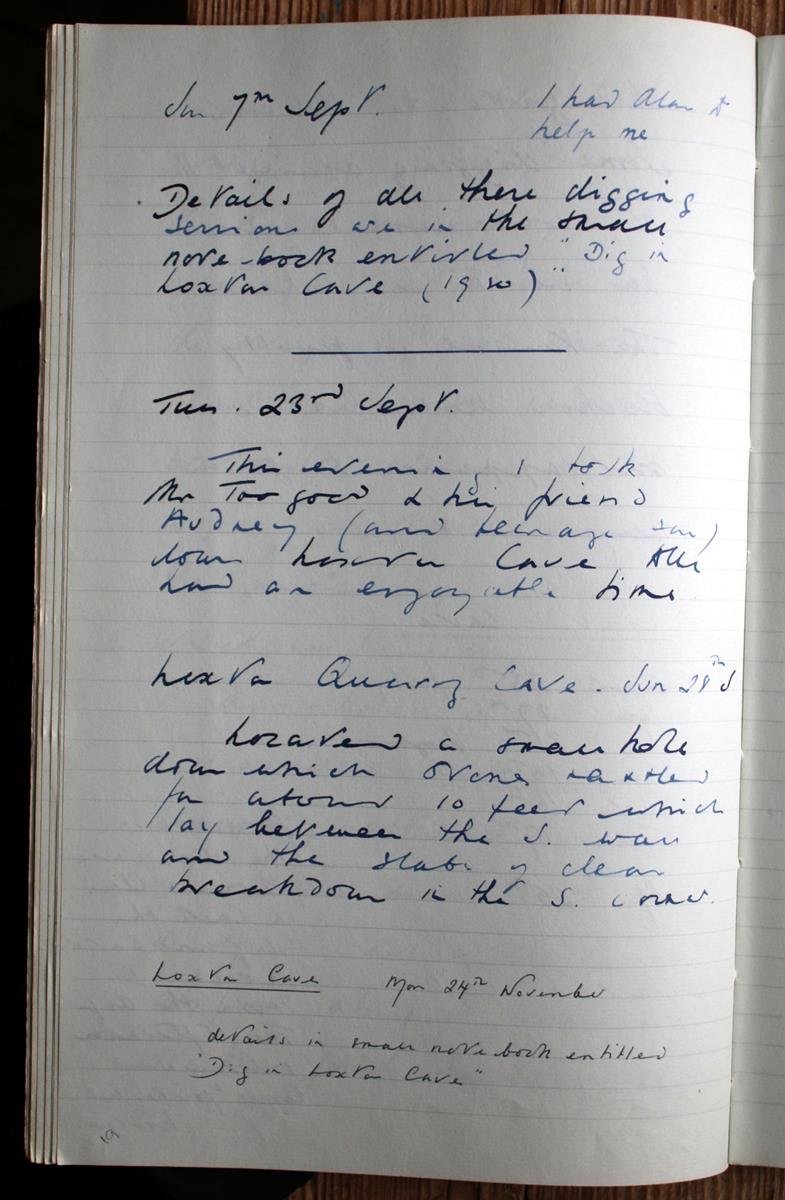 Sun 7th Sept.
I had Alan to
help me
Details of all these digging
sessions are in the small
note-book entitled "Dig in
Loxton Cave (1980)"
Tues. 23rd Sept.
This evening I took
Mr Toogood & his friend
Audrey (and teenage son)
down Loxton Cave. All
had an enjoyable time
Loxton Quarry Cave. Sun 28th S
Located a small hole
down which stones rattled
for about 10 feet which
lay between the S. wall
and the slabs of clean
breakdown in the S. corner.
Loxton Cave Mon 24th November
details in small note book entitled
"Dig in Loxton Cave"
19